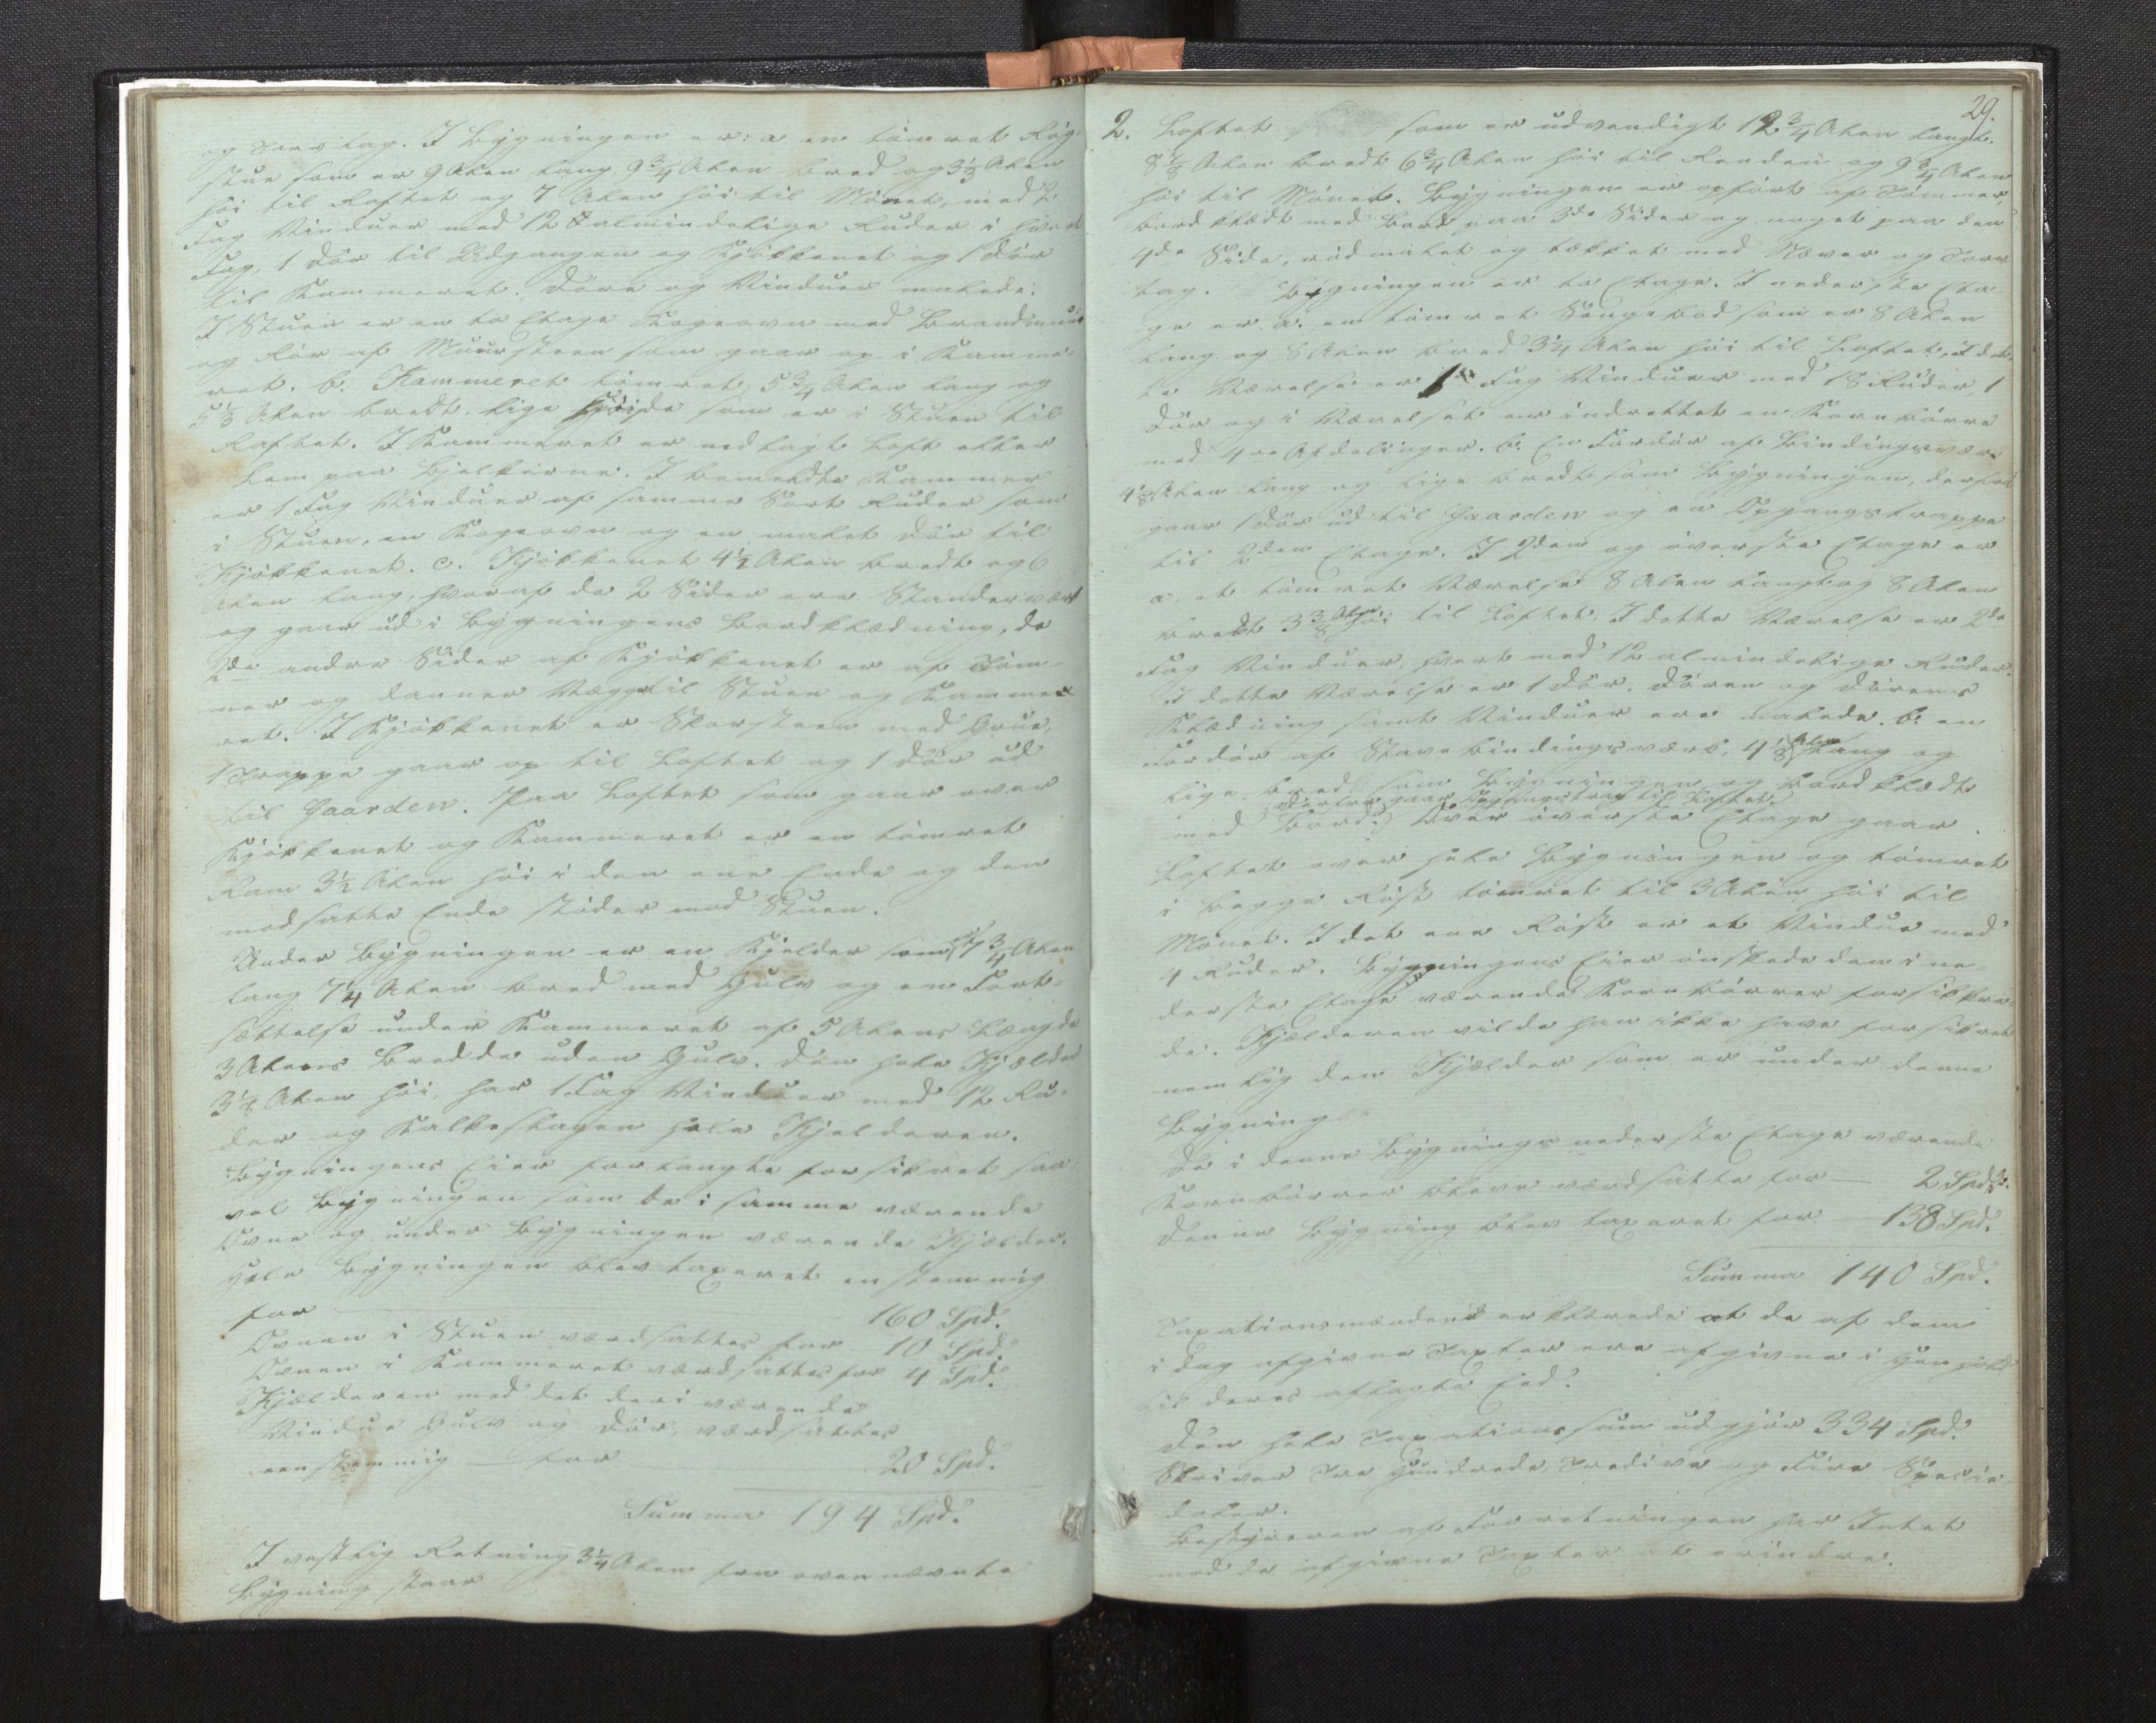 og Torv tag. I Bygningen er: a en tömret Røg-
stue som er 9 Alen lang 9 3/4 Alen bred og 3 1/3 Alen
höi til Raftet og 7 Alen höi til Mönet, med 2
Fag Vinduer med 12 almindelige Ruder i hvert
Fag, 1 Dör til Udgangen og Kjökkenet og 1 Dör
til Kammeret. Döre og Vinduer malede.
I Stuen er en to Etage Kogeovn med Brandmuur
og Rör af Muursteen som gaar op i Kamme-
ret. b. Kammeret tömret, 5 3/4 Alen lang og
5 1/3 Alen bredt, lige höide som er i Stuen til
Raftet. I Kammeret er nedlagt Loft eller
Lem paa Bjelkerne. I bemeldte Kammer
er 1 Fag Vinduer af samme Sort Ruder som
i Stuen, en Kogeovn og en malet Dör til
Kjökkenet. c. Kjökkenet 4 1/2 Alen bredt og 6
Alen lang, hvoraf de 2 Sider ere Standerværk
og gaar ud i Bygningens Bordklædning, de
2de andre Sider af Kjökkenet er af Töm-
mer og danner Vægge til Stuen og Kamme-
ret. I Kjökkenet er Skorsteen med Grue,
1 Trappe gaar op til Loftet og 1 Dör ud
til Gaarden. Paa Loftet som gaar over
Kjökkenet og Kammeret er en tömret
Ram 3 1/2 Alen höi i den ene Ende og den
modsatte Ende stöder mod Stuen.
Under Bygningen er en Kjelder som er 7 3/4 Alen
lang 7 1/4 Alen bred med Gulv og en Fort-
sættelse under Kammeret af 5 Alens Længde
3 Alens Bredde uden Gulv. Den hele Kjælder
3 1/8 Alen höi, har 1 Fag Vinduer med 12 Ru-
der og Kalkeslagen hele Kjelderen.
Bygningens Eier forlangte forsikret saa-
vel Bygningen som de i samme værende
Ovne og under Bygningen værende Kjælder.
Hele Bygningen blev taxeret enstemmig
for 160 Spd.
Ovnen i Stuen værdsattes for 10 Spd.
Ovnen i Kammeret værdsattes for 4 Spd.
Kjælderen med det deri værende
Vindue Gulv og Dör, værdsattes
eenstemmig for 20 Spd.
Summa 194 Spd.
I vestlig Retning 3 1/4 Alen fra ovennævnte
Bygning staar
29.
2. Loftet som er udvendigt 12 3/4 Alen langt.
8 1/8 Alen bredt 6 3/4 Alen höi til Renden og 9 3/4 Alen
höi til Mönet. Bygningen er opfört af Tömmer
bordklædt med Bord paa 3de Sider og noget paa den
4de Side, rödmalet og tækket med Næver og Torv
tag. Bygningen er to Etage. I nederste Eta-
ge er a. en tömret Sengebod som er 8 Alen
lang og 8 Alen bred 3 1/4 Alen höi til Loftet. I det-
te Værelse er 1 Fag Vinduer med 18 Ruder, 1
Dör og i Værelset er indrettet en Kornbörre
med 4re Afdelinger. b. En Fordör af Bindingsværk
4 1/8 Alen lang og lige bredt som Bygningen, derfra
gaar 1 Dör ud til Gaarden og en Opgangstrappe
til 2den Etage. I 2den og överste Etage er
a, et tömret Værelse 8 Alen langt og 8 Alen
bredt 3 3/8 Alen höi til Loftet. I dette Værelse er 2de
Fag Vinduer, hvert med 12 almindelige Ruder.
I dette Værelse er 1 Dör. Dören og Dörens
Klædning samt Vinduer ere malede. b. en
Fordör af Stavebindingsværk, 4 1/8 Alen lang og
lige bred som Bygningen og bordklædt
(Derfra gaar Opgangstrap til Loftet.)
med Bord. Over överste Etage gaar
Loftet over hele Bygningen og tömret
i begge Röst tömret til 3 Alen höi til
Mönet. I det ene Röst er et Vindue med
4 Ruder. Bygningens Eier önskede den i ne-
derste Etage værende Kornbörrer forsikkre-
de. Kjælderen vilde han ikke have forsikret
nemlig den Kjælder som er under denne
Bygning
De i denne Bygnings nederste Etage værende
Kornbörrer bleve værdsatte for 2 Spdr.
Denne Bygning blev taxeret for 138 Spd.
Summa 140 Spd.
Taxationsmændene erklærede at de af dem
i dag afgivne Taxter ere afgivne i Henhold
til deres aflagte Eed.
Den hele Taxationssum udgjör 334 Spd.
Skriver Tre Hundrede, Tredive og Fire Specie-
daler.
Bestyreren af Forretningen har Intet
mod de afgivne Taxter at erindre.